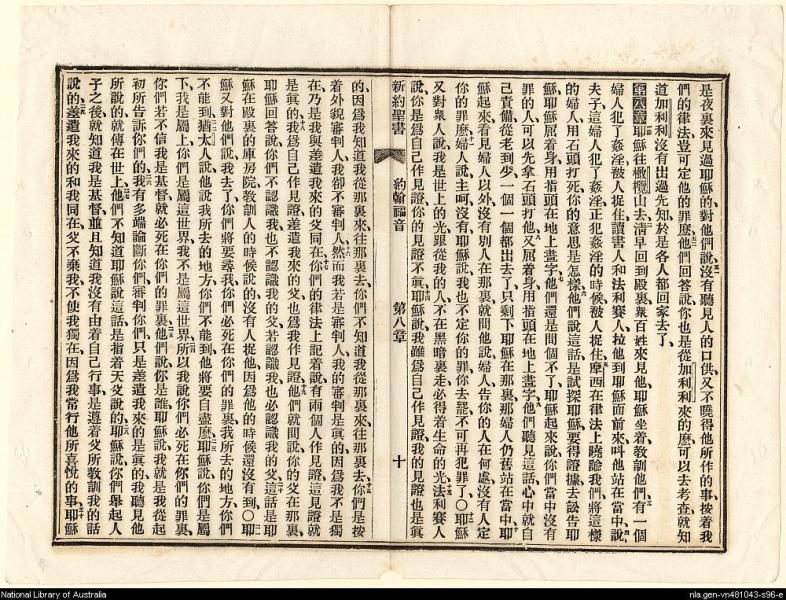 是夜裏來見過耶穌的對他們說沒有聽見人的口供又不曉得他所作的事按着我
們的律法豈可定他的罪麼他們回答說你也是從加利利來的麼可以去考查就知
道加利利沒有出過先知於是各人都回家去了
第八章耶穌往橄欖山去清早回到殿裏衆百姓來見他耶穌坐着教訓他們有一個
婦人犯了姦淫被人捉住讀書人和法利賽人拉他到耶穌面前來叫他站在當中說
夫子這婦人犯了姦淫正犯姦淫的時候被人捉住摩西在律法上曉諭我們將這樣
的婦人用石頭打死你的意思是怎樣他們說這話是試探耶穌要得證據去訟告耶
穌耶穌屈着身用指頭在地上畫字他們還是問個不了耶穌起來說你們當中沒有
罪的人可以先拿石頭打他又屈着身用指頭在地上畫字他們聽見這話心中就自
己責備從老到少一個一個都出去了只剩下耶穌在那裏那婦人仍舊站在當中耶
穌起來看見婦人以外沒有別人在那裏就問他說婦人告你的人在何處沒有人定
你的罪麼婦人說主呵沒有耶穌說我也不定你的罪你去罷不可再犯罪了○耶穌
又對衆人說我是世上的光跟從我的人不在黑暗裏走必得着生命的光法利賽人
說你是爲自己作見證你的見證不眞耶穌說我雖爲自己作見證我的見證也是眞
新約聖書 約翰福音 第八章 十
的因爲我知道我從那裏來往那裏去你們不知道我從那裏來往那裏去你們是按
着外貌審判人我卻不審判人然而我若是審判人我的審判是眞的因爲我不是獨
在乃是我與差遣我來的父同在你們的律法上記着說有兩個人作見證這見證就
是眞的我爲自己作見證差遣我來的父也爲我作見證他們就問說你的父在那裏
耶穌回答說你們不認識我也不認識我的父若認識我也必認識我的父這話是耶
穌在殿裏的庫房院教訓人的時候說的沒有人捉他因爲他的時候還沒有到○耶
穌又對他們說我去了你們將要尋我你們必死在你們的罪裏我所去的地方你們
不能到猶太人說他說我所去的地方你們不能到他將要自盡麼耶穌說你們是屬
下我是屬上你們是屬這世界我不是屬這世界所以我說你們必死在你們的罪裏
你們若不信我是基督就必死在你們的罪裏他們說你是誰耶穌說我就是我從起
初所告訴你們的我有多端論斷你們審判你們只是差遣我來的是眞的我聽見他
所說的就傳在世上他們不知道耶穌說這話是指着天父說的耶穌說你們舉起人
子之後就知道我是基督並且知道我沒有由着自己行事是遵着父所教訓我的話
說的差遣我來的和我同在父不棄我不使我獨在因爲我常行他所喜悅的事耶穌
National Library of Australia
nla.gen-vn481043-s96-e